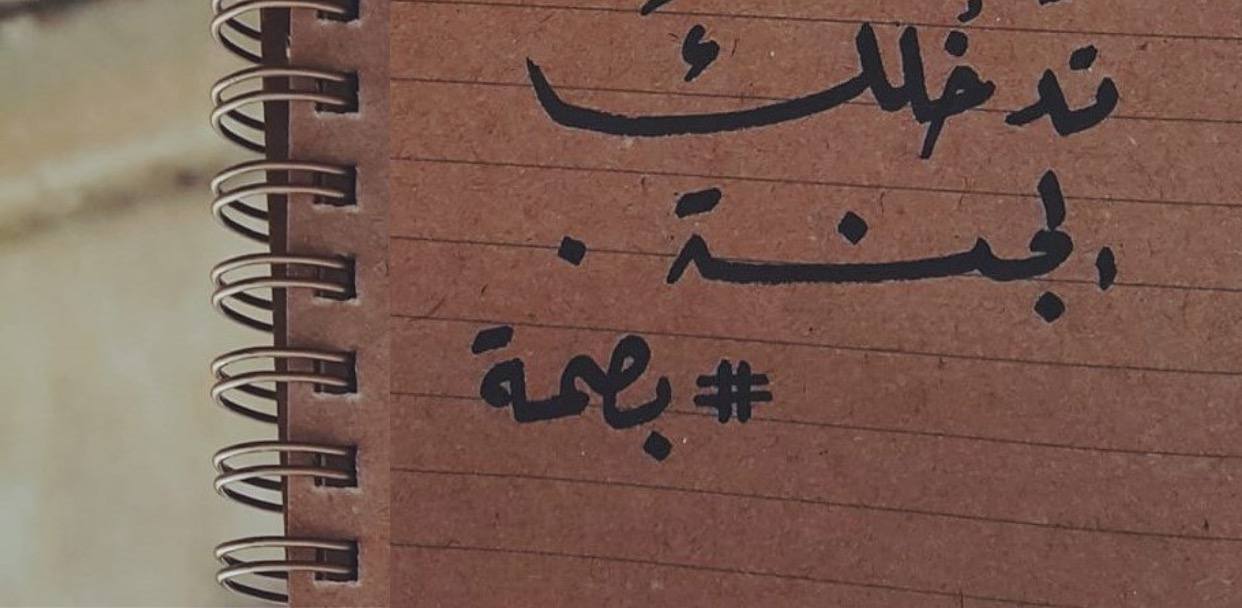 تدخلك
الجنة .
#بصمة